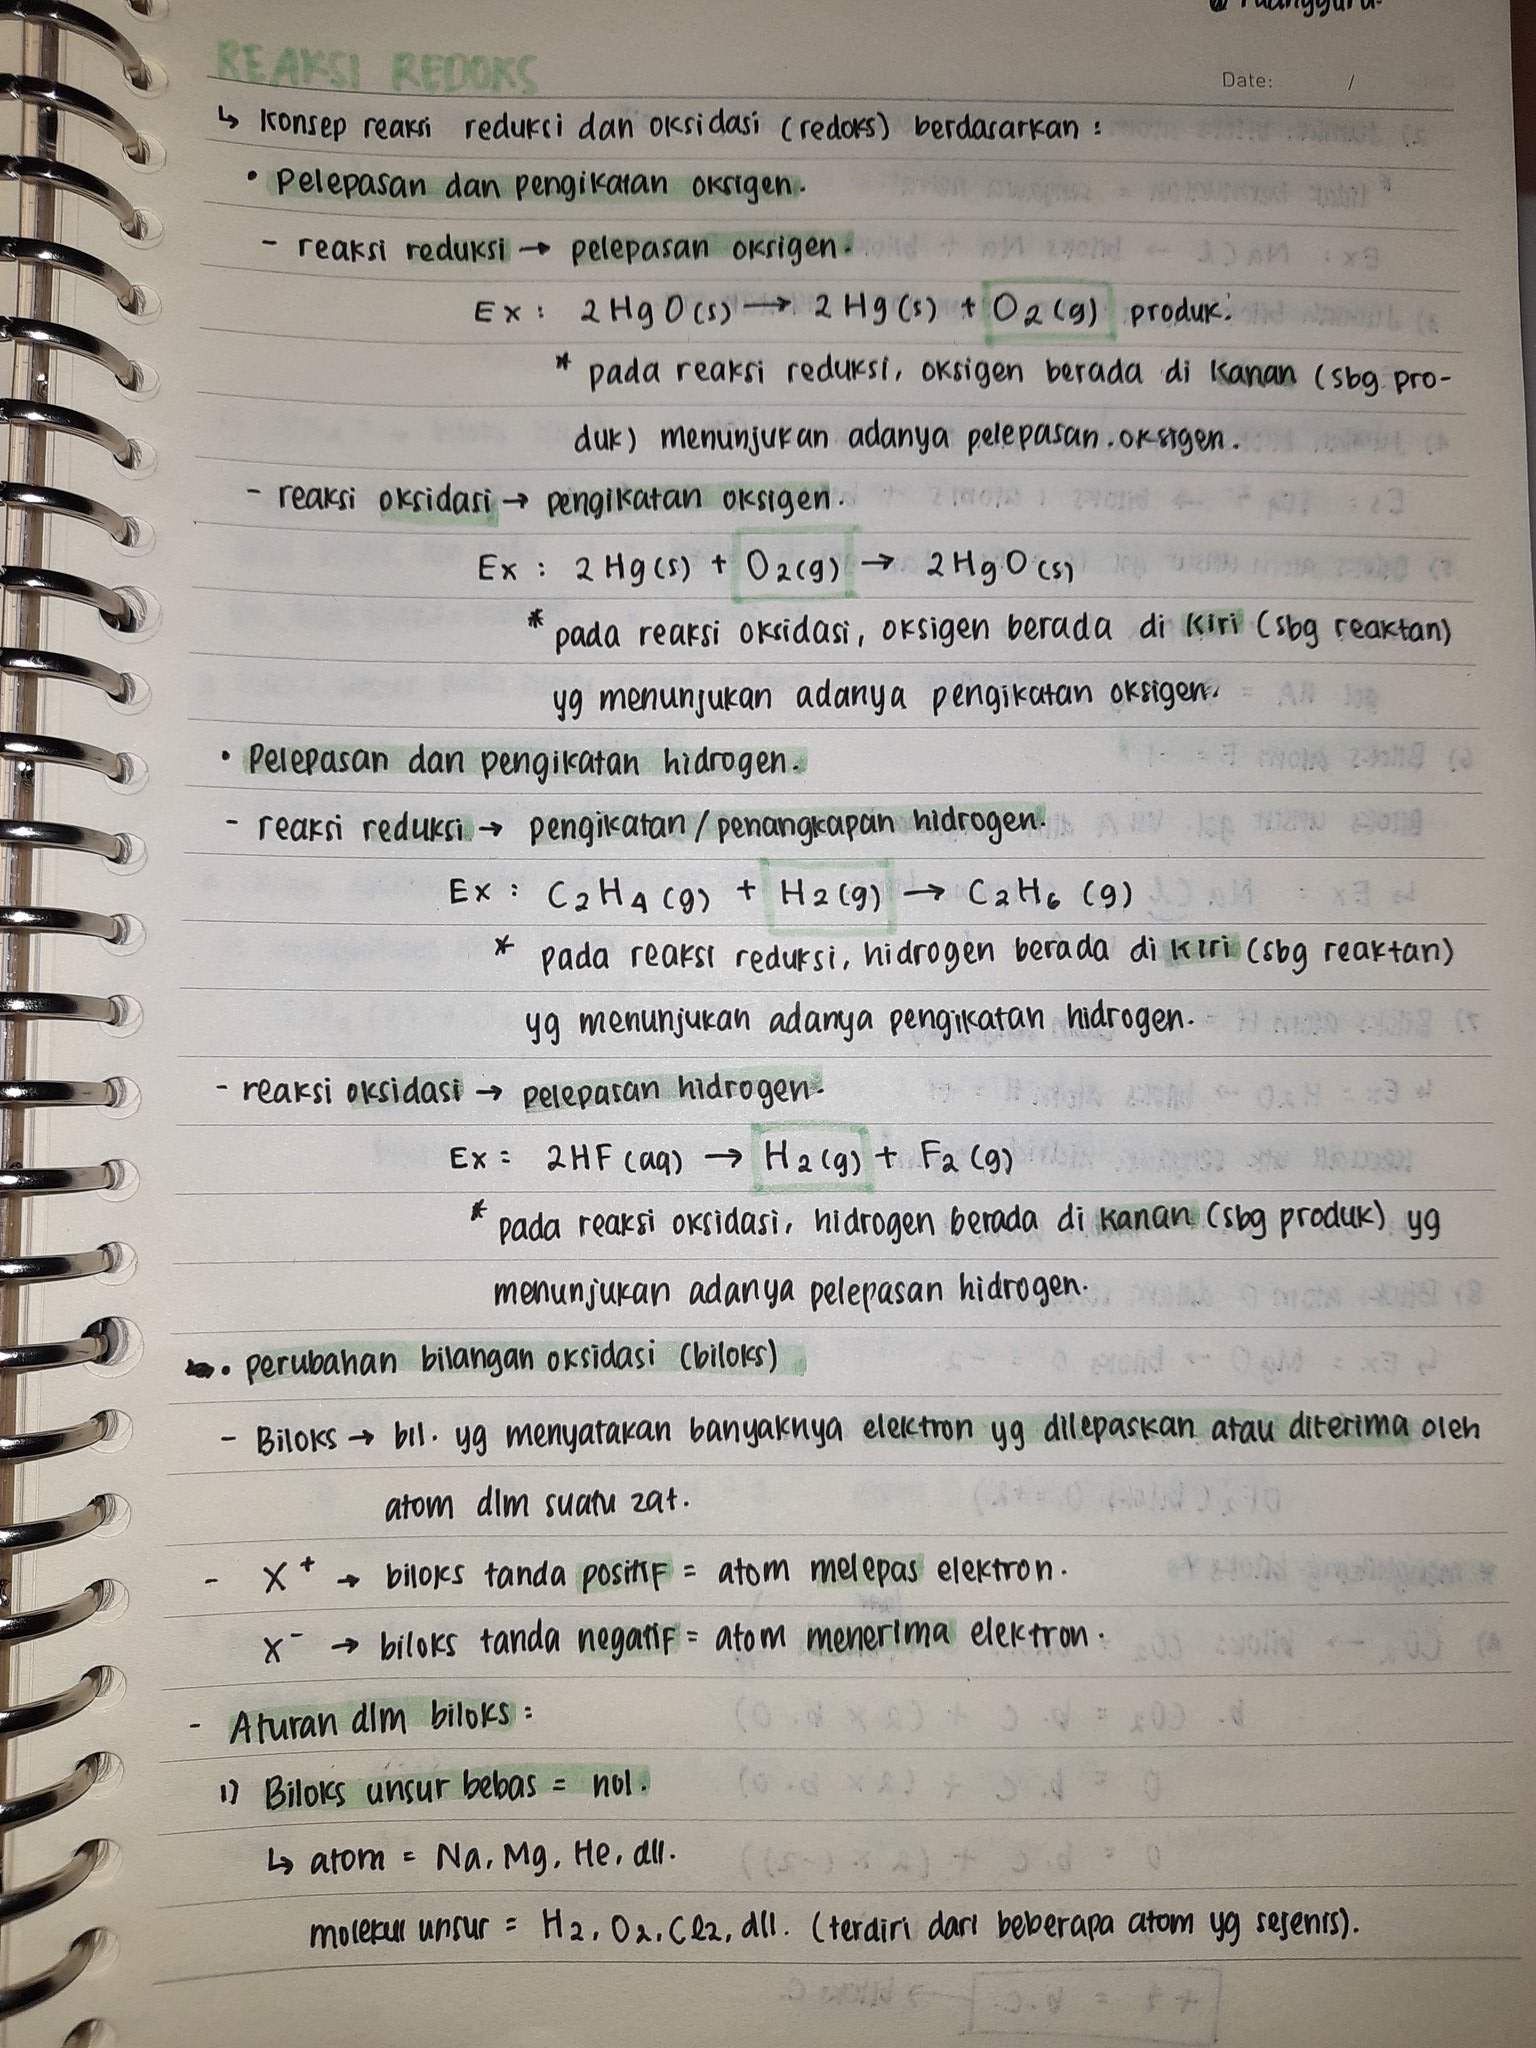 REAKSI REDOKS
Date: /
↳ Konsep reaksi reduksi dan oksidasi (redoks) berdasarkan :
• Pelepasan dan pengikatan oksigen.
- reaksi reduksi → pelepasan oksigen.
Ex : 2HgO(s) → 2Hg(s) + O2(g) produk.
* pada reaksi reduksi, oksigen berada di kanan (sbg pro-
duk) menunjukan adanya pelepasan oksigen.
- reaksi oksidasi → pengikatan oksigen.
Ex : 2Hg(s) + O2(g) → 2HgO(s)
* pada reaksi oksidasi, oksigen berada di kiri (sbg reaktan)
yg menunjukan adanya pengikatan oksigen.
• Pelepasan dan pengikatan hidrogen.
- reaksi reduksi → pengikatan/penangkapan hidrogen.
Ex : C2H4(g) + H2(g) → C2H6 (g)
* pada reaksi reduksi, hidrogen berada di kiri (sbg reaktan)
yg menunjukan adanya pengikatan hidrogen.
- reaksi oksidasi → pelepasan hidrogen.
Ex = 2HF(aq) → H2(g) + F2(g)
* pada reaksi oksidasi, hidrogen berada di kanan (sbg produk) yg
menunjukan adanya pelepasan hidrogen.
• perubahan bilangan oksidasi (biloks)
- Biloks → bil. yg menyatakan banyaknya elektron yg dilepaskan atau diterima oleh
atom dlm suatu zat.
- X+ → biloks tanda positif = atom melepas elektron.
X- → biloks tanda negatif = atom menerima elektron.
- Aturan dlm biloks :
1) Biloks unsur bebas = nol.
↳ atom = Na, Mg, He, dll.
molekul unsur = H2, O2, Cl2, dll. (terdiri dari beberapa atom yg sejenis).